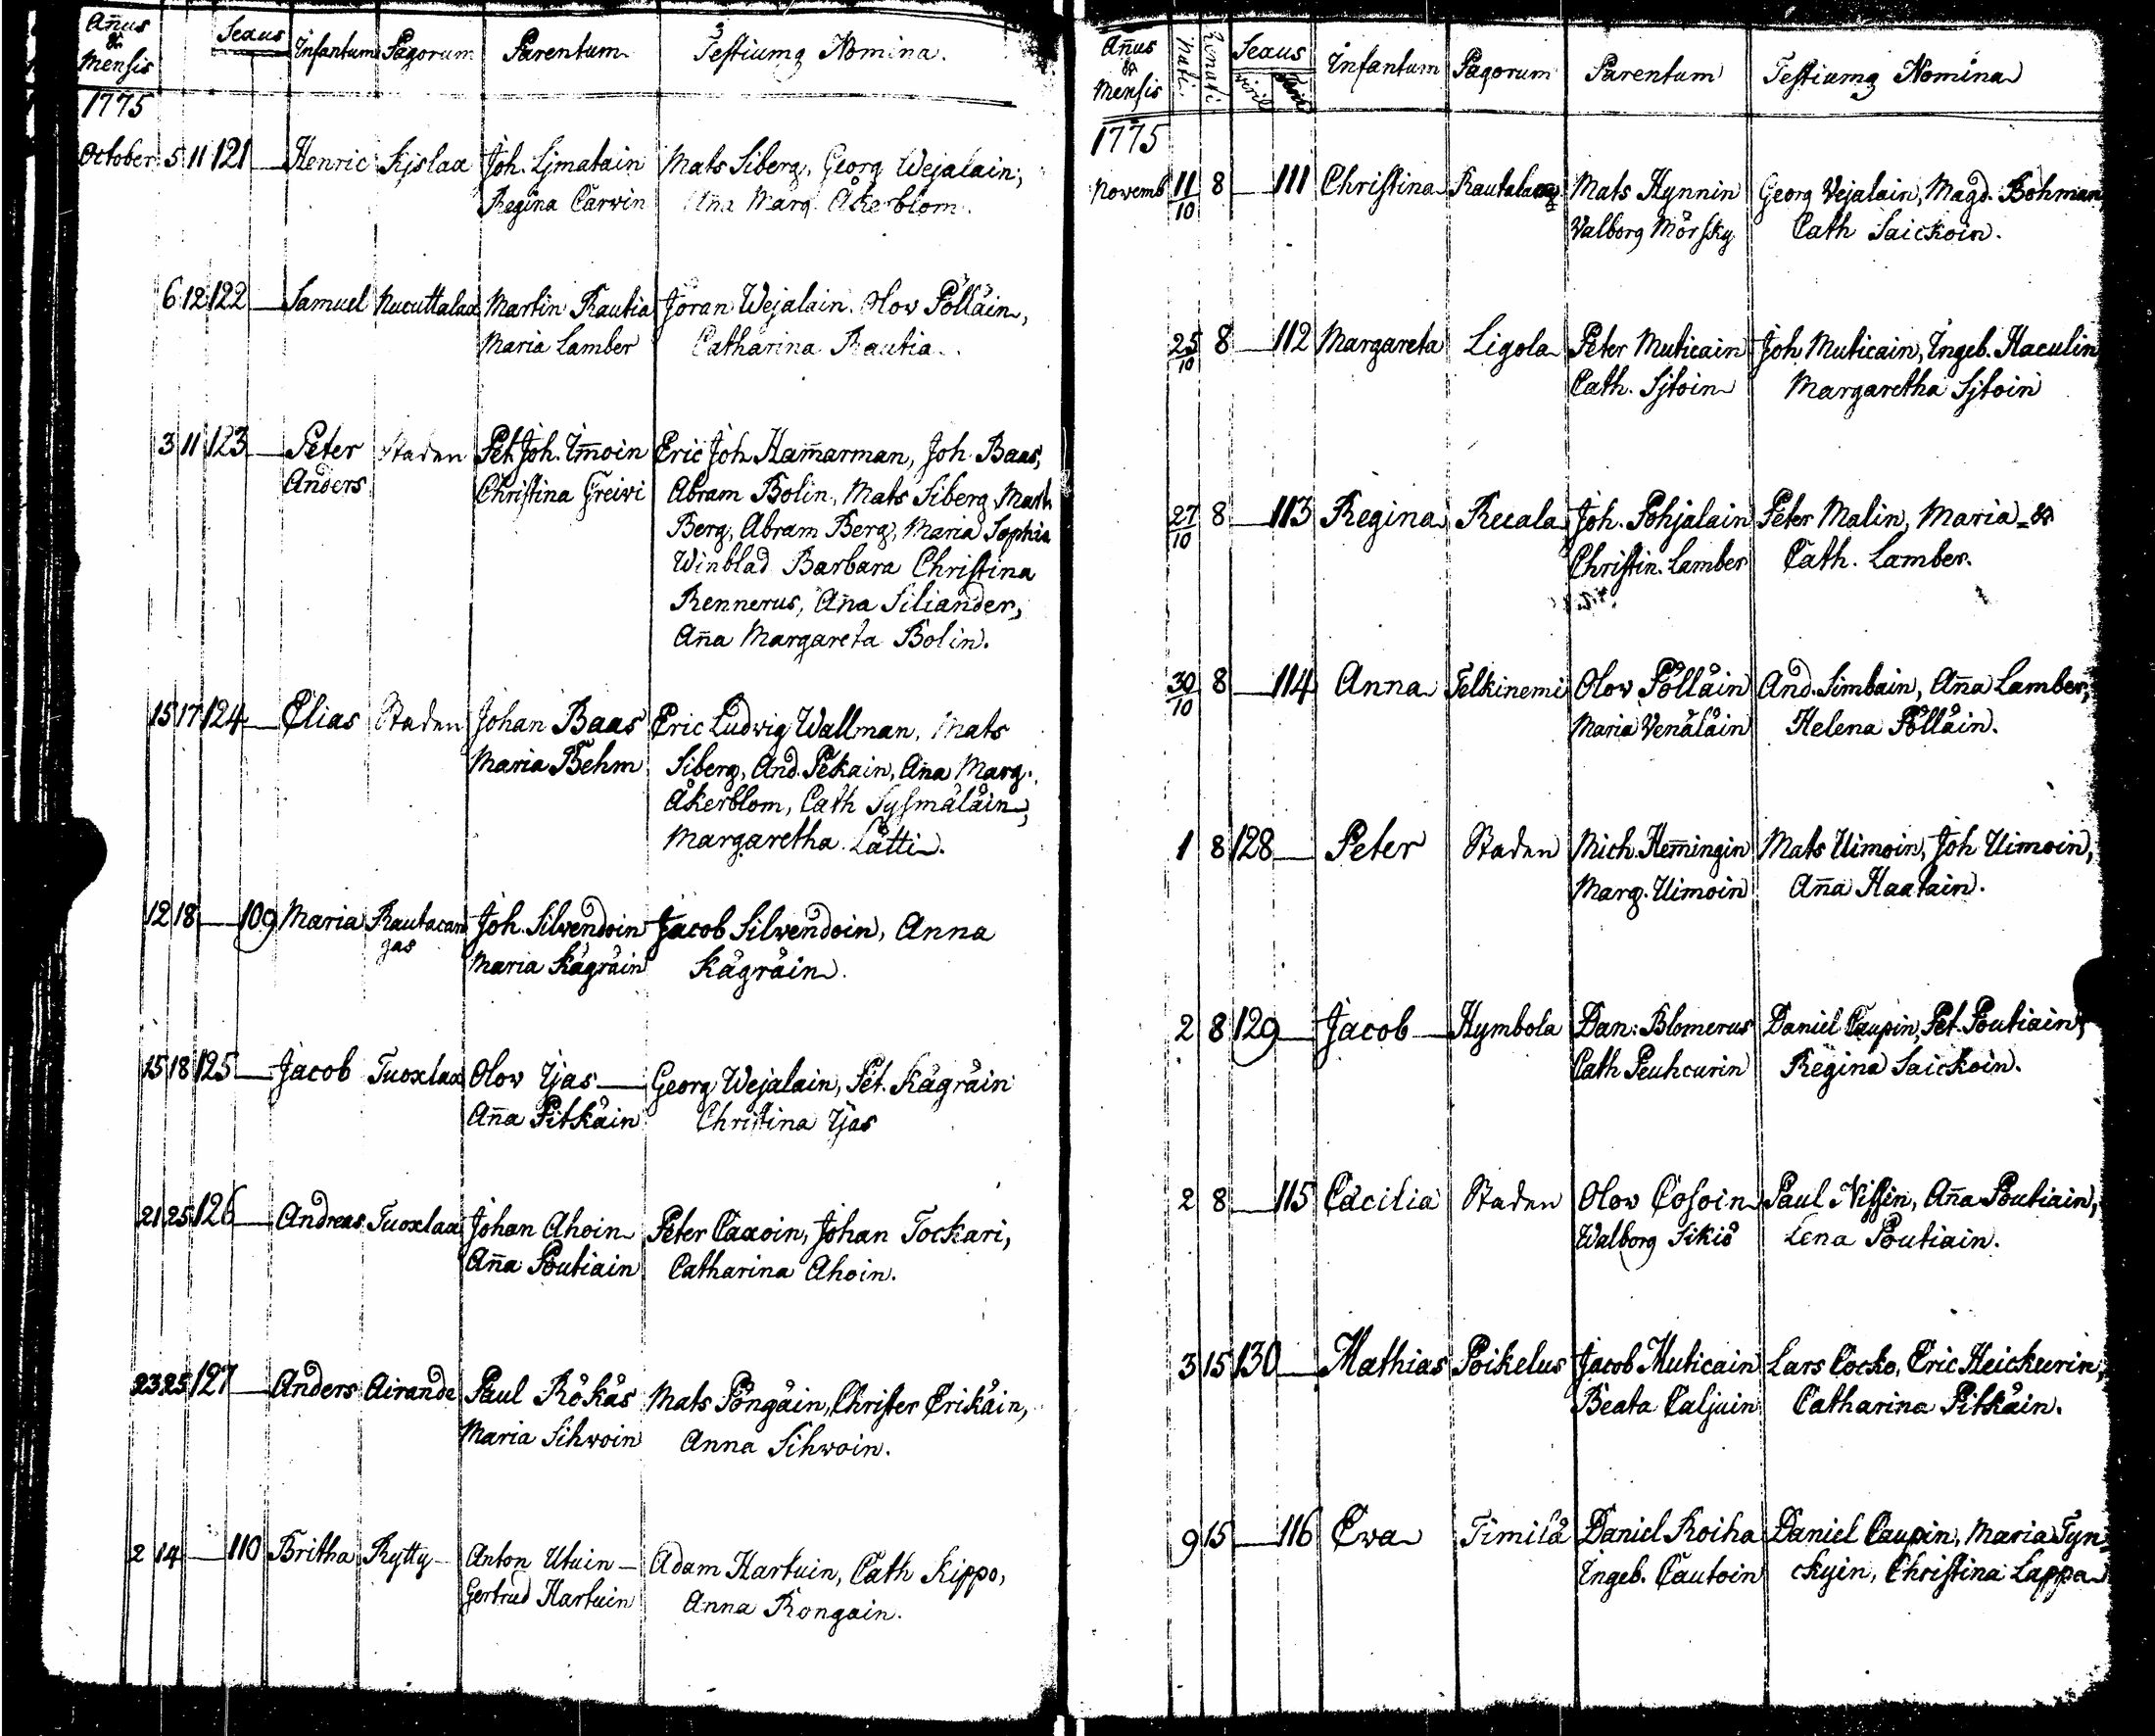 Añus & Mensis Sexus Infantum Pagorum Parentum Testiumq Nomina.
1775
October 5 11 121 — Henric Kislax Joh. Ljmatain Mats Siberg, Georg Wejalain,
Regina Carwin Aña Marg. Åkerblom.
6 12 122 — Samuel Nucuttalax Martin Rautia Jöran Wejalain. Olov Pölläin,
Maria Lamber Catharina Rautia.
3 11 123 — Peter Staden Pet. Joh. Im̄oin Eric Joh Ham̄arman, Joh. Baas,
Anders Christina Greivi Abram Bolin, Mats Siberg, Mart.
Berg, Abram Berg, Maria Sophia
Winblad Barbara Christina
Rennerus, Aña Siliander,
Aña Margareta Bolin.
15 17 124 — Elias Staden Johan Baas Eric Ludvig Wallman, Mats
Maria Behm Siberg, And. Pekain, Aña Marg.
Åkerblom, Cath Sysmäläin,
Margaretha Lätti.
12 18 — 109 Maria Rautacan Joh. Silvendoin Jacob Silvendoin, Anna
gas Maria Kägräin Kägräin.
15 18 125 — Jacob Tuoxlax Olov Ijas — Georg Wejalain, Pet. Kägräin
Aña Pitkäin Christina Ijas
21 25 126 — Andreas Tuoxlax Johan Ahoin Peter Caxoin, Johan Tockari,
Aña Poutiain Catharina Ahoin.
23 25 127 — Anders Airande Paul Rökäs Mats Pöngäin, Christer Erikäin,
Maria Sihvoin Anna Sihvoin.
2 14 — 110 Britha Rytty Anton Utuin — Adam Hartuin, Cath Kippo,
Gertrud Hartuin Anna Rongain.
Añus & Mensis Nati Renati Sexus Viril Infantum Pagorum Parentum Testiumq Nomina
1775
Novemb 11/10 8 — 111 Christina Rautalax Mats Hynnin Georg Vejalain, Magd. Bohman
Valborg Mörsky Cath Saickoin.
25/10 8 — 112 Margareta Ligola Peter Muticain Joh Muticain, Ingeb. Haculin
Cath. Sjtoin Margaretha Sjtoin
27/10 8 — 113 Regina Recala Joh. Pohjalain Peter Malin, Maria &
Christin. Lamber Cath. Lamber.
30/10 8 — 114 Anna Telkinemi Olov Pölläin And. Simbain, Aña Lamber,
Maria Venäläin Helena Pölläin.
1 8 128 — Peter Staden Mich. Hem̄ingin Mats Uimoin, Joh Uimoin,
Marg. Uimoin Aña Haatain.
2 8 129 — Jacob Hymbola Dan: Blomerus Daniel Caupin, Pet. Poutiain,
Cath Peuhcurin Regina Saickoin.
2 8 — 115 Cäcilia Staden Olov Cosoin Paul Nissin, Aña Poutiain,
Walborg Sikiö Lena Poutiain.
3 15 130 — Mathias Poikelus Jacob Muticain Lars Cocko, Eric Heickurin,
Beata Caljuin Catharina Pitkäin.
9 15 — 116 Ewa Timilä Daniel Roiha Daniel Caupin, Maria Tyn=
Ingeb. Cautoin ckyin, Christina Lappa